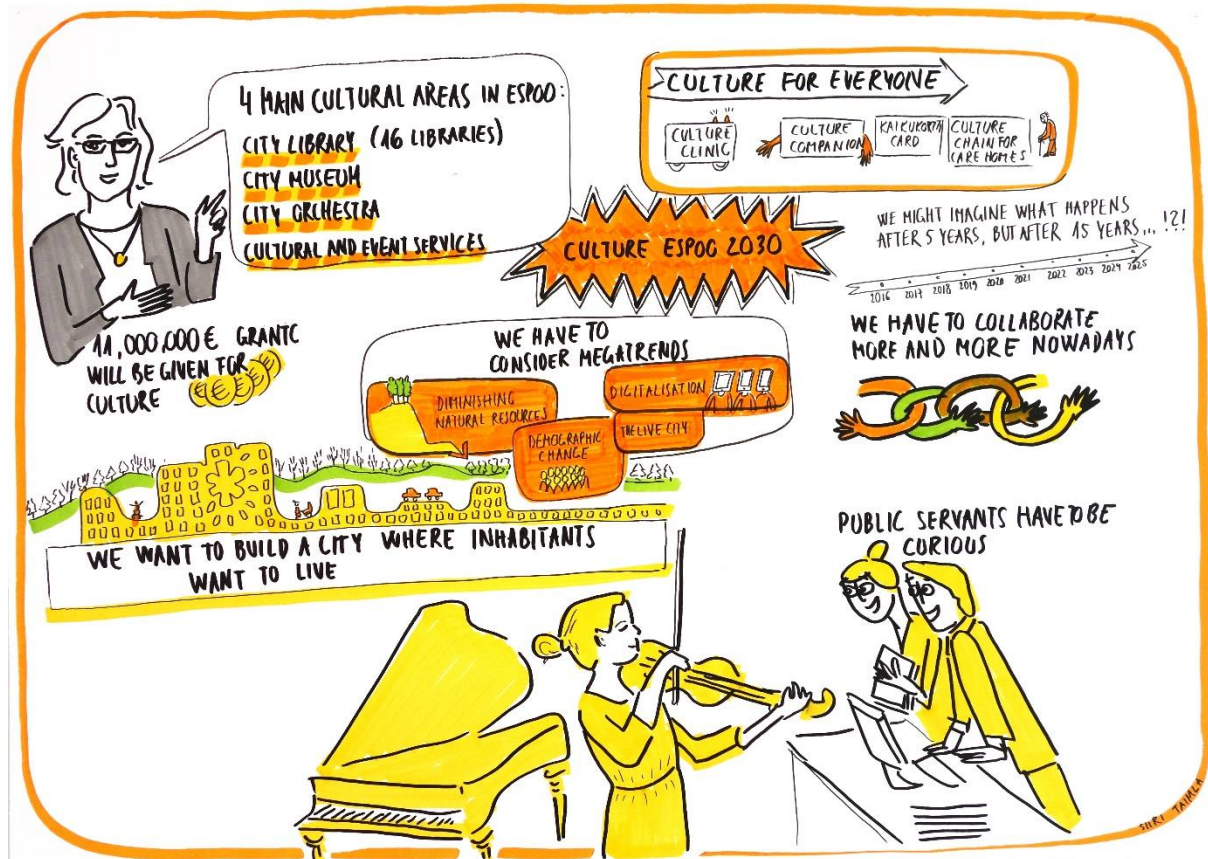 4 MAIN CULTURAL AREAS IN ESPOO:
CITY LIBRARY (16 LIBRARIES)
CITY MUSEUM
CITY ORCHESTRA
CULTURAL AND EVENT SERVICES
11,000,000€ GRANTC
WILL BE GIVEN FOR
CULTURE €€€€€
CULTURE FOR EVERYONE
CULTURE
CLINIC
CULTURE
COMPANION
CARD
CULTURE
CHAIN FOR
CARE HOMES
CULTURE ESPOO 2030
WE MIGHT IMAGINE WHAT HAPPENS
AFTER 5 YEARS, BUT AFTER 15 YEARS... !?!
2016 2017 2018 2019 2020 2021 2022 2023 2024 2025
WE HAVE TO
CONSIDER MEGATRENDS
DIMINISHING
NATURAL RESOURCES
DIGITALISATION
THE LIVE CITY
DEMOGRAPHIC
CHANGE
WE HAVE TO COLLABORATE
MORE AND MORE NOWADAYS
WE WANT TO BUILD A CITY WHERE INHABITANTS
WANT TO LIVE
PUBLIC SERVANTS HAVE TO BE
CURIOUS
SIIRI TAIMLA